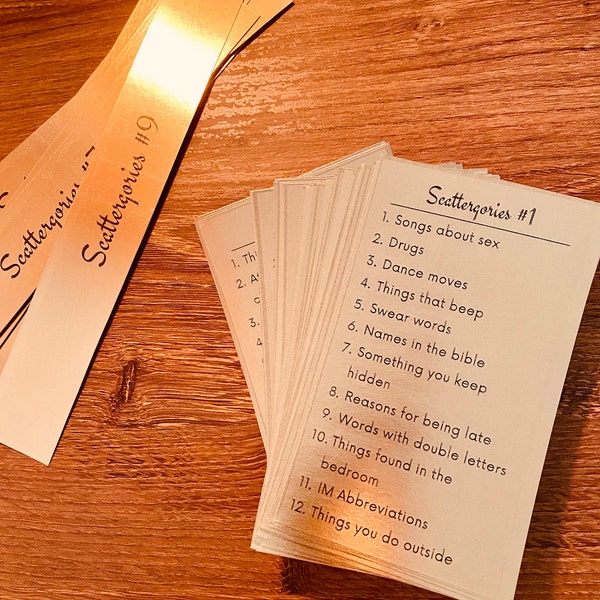 Scattergories #9
Scattergories #
Scattergories #1
1. Songs about sex
2. Drugs
3. Dance moves
4. Things that beep
5. Swear words
6. Names in the bible
7. Something you keep
hidden
8. Reasons for being late
9. Words with double letters
10. Things found in the
bedroom
11. IM Abbreviations
12. Things you do outside
1.
2.
3.
4.